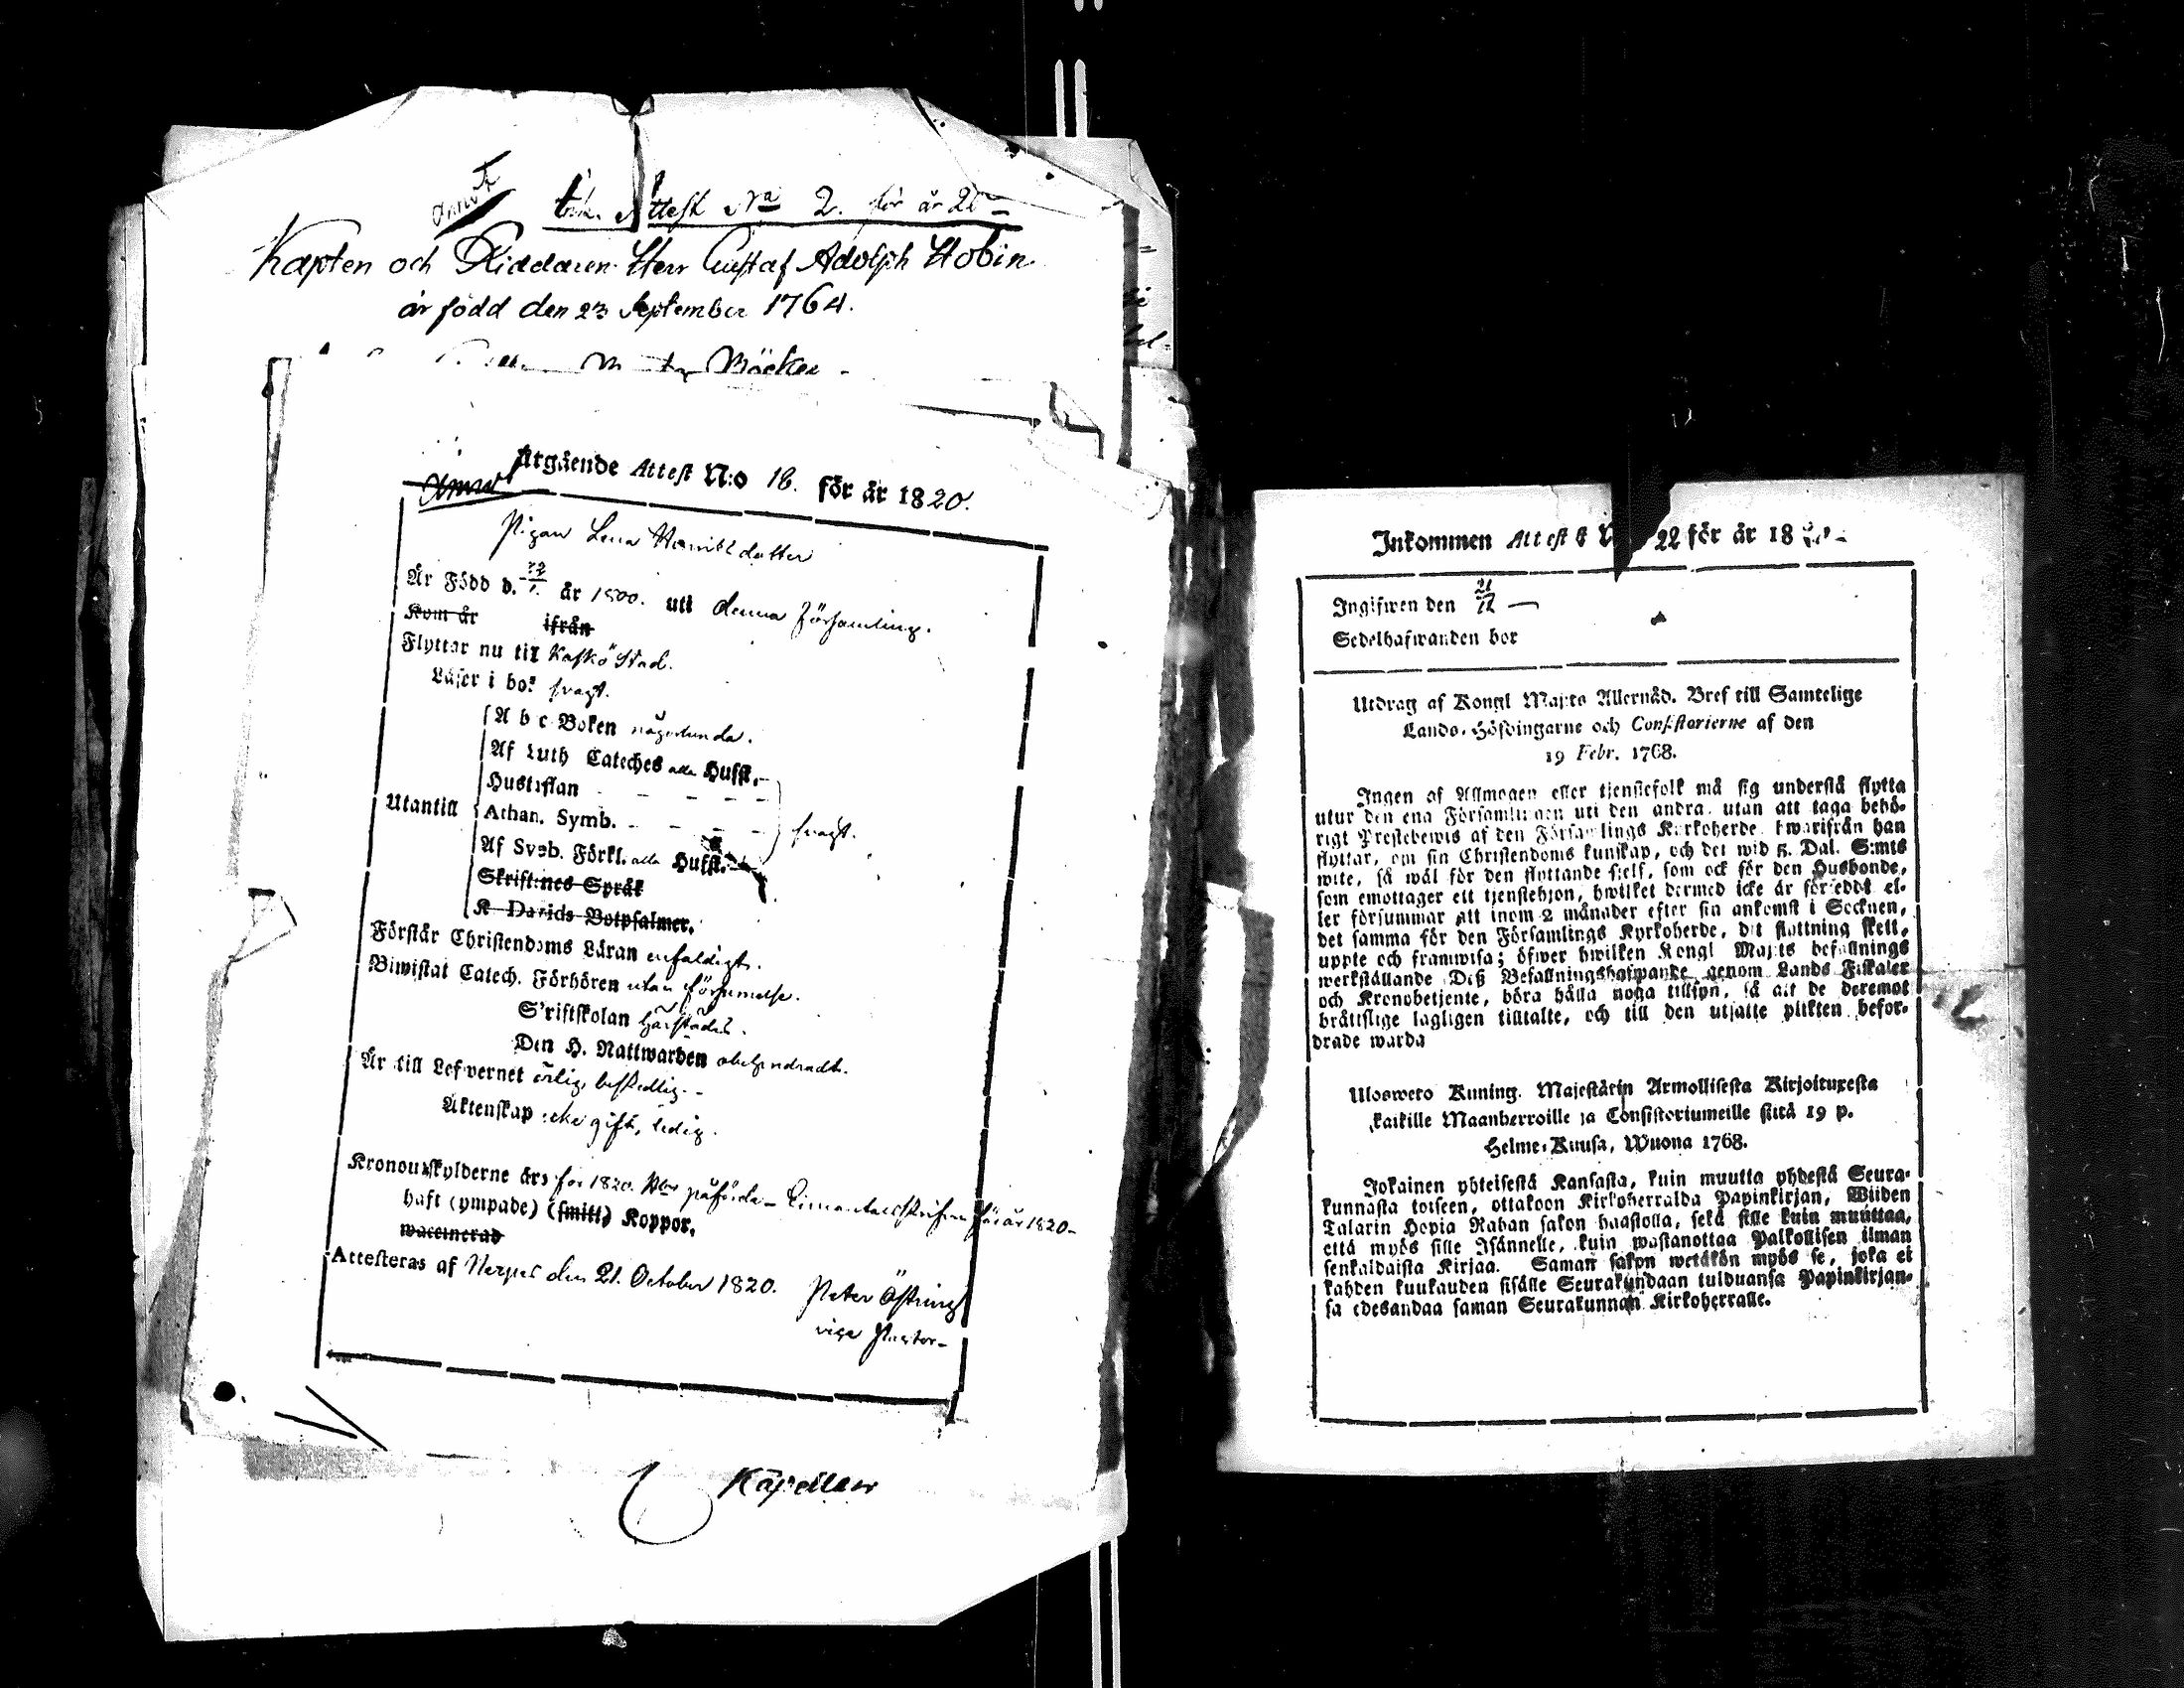 Attest No 2. för år 20
Kapten och Riddaren Herr Gustaf Adolph Hobin
är född den 23 September 1764.
Utgående Attest N:o 18. för år 1820.
Pigan Lena
Är Född d. år 1800. uti denna Församling.
Kom år ifrån
Flyttar nu till Kaskö Stad.
Läser i bok svagt.
A b c Boken någorlunda.
Af Luth Cateches alla Hufst.
Hustaflan
Utantill
Athan. Symb.
svagt.
Af Sveb. Förkl. alla Hufst.
Skriftenes Språk
K Davids Botpsalmer.
Förstår Christendoms Läran enfaldigt.
Biwistat Catech. Förhören utan försummelse.
S'riftskolan härstädes.
Den H. Nattwarden obehindradt.
Är till Lefvernet ärlig, beskedlig.
Äktenskap icke gift, ledig.
Kronoutskylderne års för 1820. påförda för år 1820
haft (ympade) (smitt) Koppor.
waccinerad
Attesteras af Nerpes den 21. October 1820.
Peter Östring
vice Pastor
Kapellan
Inkommen Attest N 22 för år 18
Ingifwen den 21/12
Sedelhafwanden bor
Utdrag af Kongl Maj:ts Allernåd. Bref till Samtelige
Lands-Höfdingarne och Consistorierne af den
19 Febr. 1768.
Ingen af Allmogen eller tjenstefolk må sig understå flytta
utur den ena Församlingen uti den andra, utan att taga behö-
rigt Prestebewis af den Församlings Kyrkoherde, hwarifrån han
flyttar, om sin Christendoms kunskap, och det wid 5. Dal. S:mts
wite, så wäl för den flyttande sjelf, som ock för den Husbonde,
som emottager ett tjenstehjon, hwilket dermed icke är försedt el-
ler försummar att inom 2 månader efter sin ankomst i Socknen,
det samma för den Församlings Kyrkoherde, dit flyttning skett,
uppte och framwisa; öfwer hwilken Kongl Maj:ts befallnings
werkställande Deß Befallningshafwande genom Lands Fiskaler
och Kronobetjente, böra hålla noga tillsyn, så att de deremot
bråttslige lagligen tilltalte, och till den utsatte plikten befor-
drade warda
Ulosweto Kuning. Majestätin Armollisesta Kirjoituxesta
kaikille Maanherroille ja Consistoriumeille siitä 19 p.
Helme-Kuusa, Wuona 1768.
Jokainen yhteisestä Kansasta, kuin muutta yhdestä Seura-
kunnasta toiseen, ottakoon Kirkoherralda Papinkirjan, Wiiden
Talarin Hopia Rahan sakon haastolla, sekä sille kuin muuttaa,
että myös sille Isännelle, kuin wastanottaa Palkollisen ilman
senkaldaista Kirjaa. Saman sakon wetäkön myös se, joka ei
kahden kuukauden sisälle Seurakundaan tulduansa Papinkirjan-
sa edesandaa saman Seurakunnan Kirkoherralle.